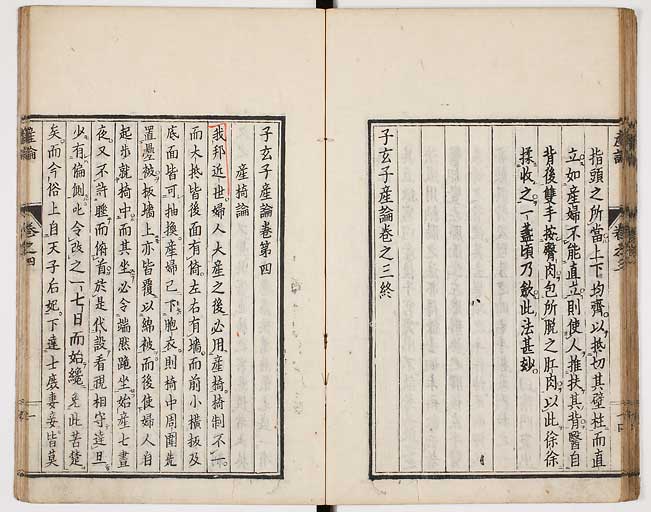 指頭之所當上下均齊以抵切其壁柱而直
立如産婦不能直立則使人推扶其背醫自
背後雙手按臀肉包所脫之肛肉以此徐徐
揉收之一盞頃乃歛此法甚妙
子玄子產論卷之三終
子玄子產論卷第四
産椅論
我邦近世婦人大産之後必用産椅椅制不一
而大抵皆後面有倚左右有墻而前小橫板及
底面皆可抽換産婦已下胞衣則椅中周圍先
置疊被板墻上亦皆覆以綿被而後使婦人自
起步就椅中而其坐必令端然跪坐始産七晝
夜又不許睡而俯首於是代設看視相守達旦
少有偏側叱令改之一七日而始纔免此苦楚
矣而今俗上自天子后妃下達士庶妻妾皆莫
産論
卷之四